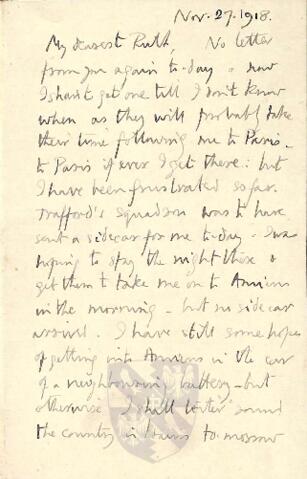 Nov. 27. 1918.
My dearest Ruth, No letter
from you again to-day & now
I shan't get one till I don't know
when as they will probably take
their time following me to Paris -
to Paris if ever I get there: but
I have been frustrated so far.
Trafford's squadron was to have
sent a sidecar for me to-day - I was
hoping to stay the night there &
get them to take me on to Amiens
in the morning - but no sidecar
arrived. I have still some hopes
of getting into Amiens in the car
of a neighbouring battery - but
otherwise I shall round
the country in trains to-morrow